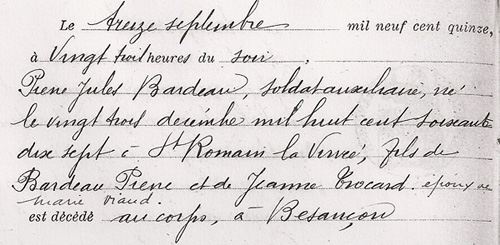 Le treize septembre mil neuf cent quinze,
à Vingt trois heures du soir,
Pierre Jules Bardeau, soldat auxiliaire, né
le vingt trois décembre mil huit cent soixante
dix sept à St Romain la Virvée, fils de
Bardeau Pierre et de Jeanne Trocard. époux de
marie Viaud.
est décédé au corps, à Besançon